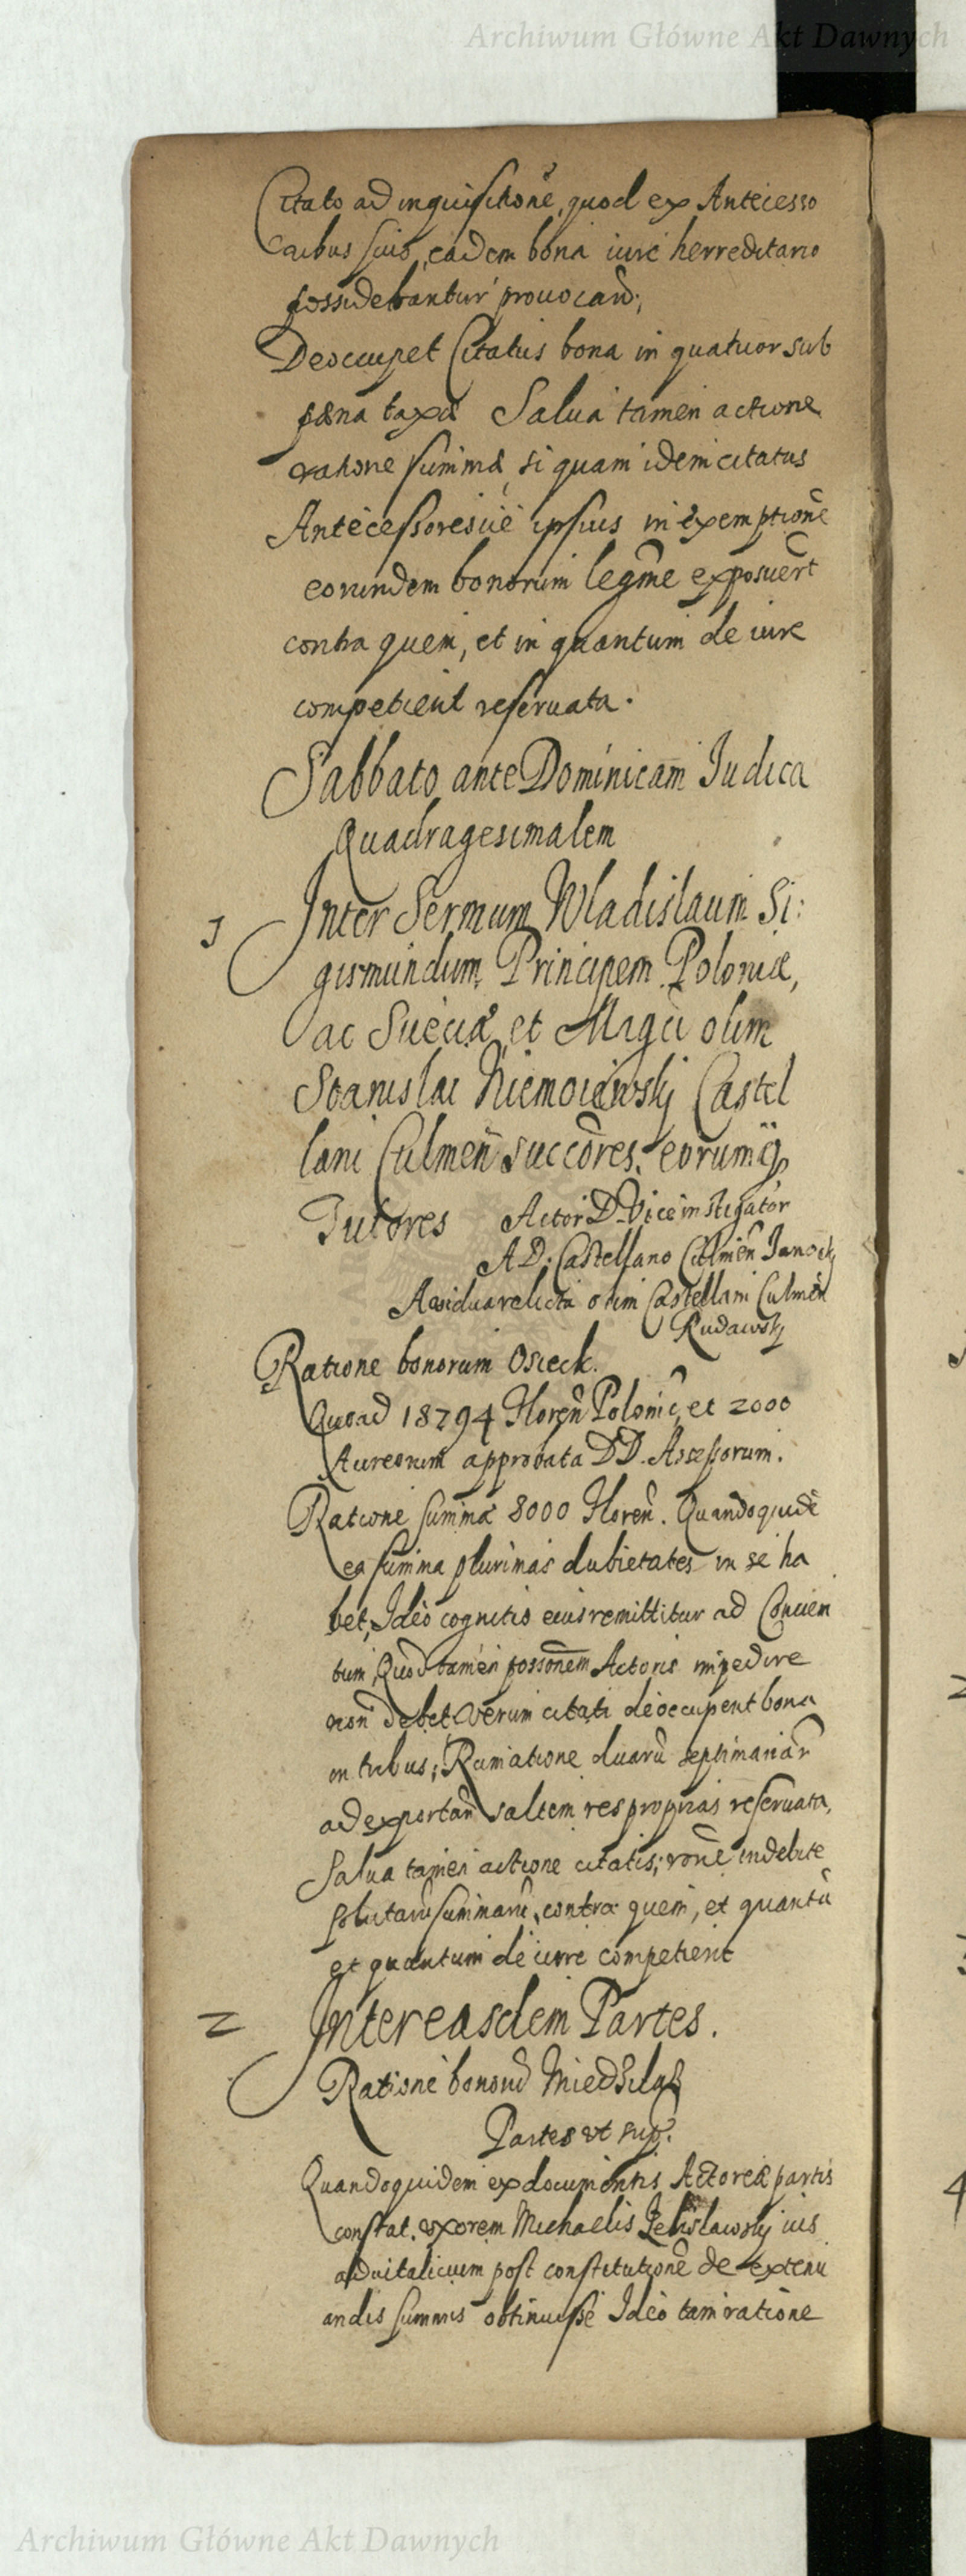 Archiwum Główne Akt Dawnych
Citato ad inquisitionē, quod ex Antecesso
ribus suis, eadem bona iure herreditario
possidebantur provocañ;
Deoccupet Citatus bona in quatuor sub
pæna taxæ Salua tamen actione
ratione summæ, si quam idem citatus
Antecessoresue ipsius in exemptionē
eorundem bonorum legmē exposuer̃t
contra quem, et in quantum de iure
competieut reseruata.
Sabbato ante Dominicam Iudica
Quadragesimalem
1 Inter Sermum Wladislaum Si:
gismundum Principem Poloniæ,
ac Sueciæ et Magci olim
Stanislai Niemoiewskj Castel
lani Culmeñ succōres, eorumq₃
Tutores Actor D. Viceinstigator
A D. Castellano Culmeñ Janocki
A vidua relicta olim Castellani Culmeñ
Rudawskj
Ratione bonorum Osieck.
Quoad 18794 Floreñ Polonic̃, et 2000
Aureorum approbata DD. Assessorum.
Ratione summæ 8000 Floreñ. Quandoquidē
ea summa plurimas dubietates in se ha
bet, Ideo cognitio eius remittitur ad Conuen
tum, Quod tamen possōnem Actoris impedire
non debet Verum citati deoccupent bona
in tribus; Rumatione duarū septimanar̃
ad exportañ saltem res proprias reseruata,
Salua tamen actione citatis; rōne indebite
solutarū summarū, contra quem, et quantū
et quantum de iure competient
2 Inter easdem Partes.
Ratione bonorū
Partes ut sup.
Quandoquidem ex documentis Actoreæ partis
constat, uxorem Michaelis ius
aduitalicium post constitutionē de extenu
andis summis obtinuisse Ideo tam ratione
Archiwum Główne Akt Dawnych